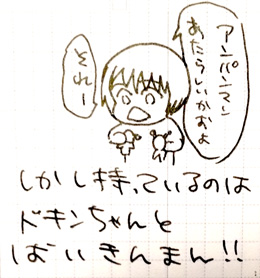 アンパンマン
あたらしいかおよ
それー
しかし持っているのは
ドキンちゃんと
ばいきんまん!!